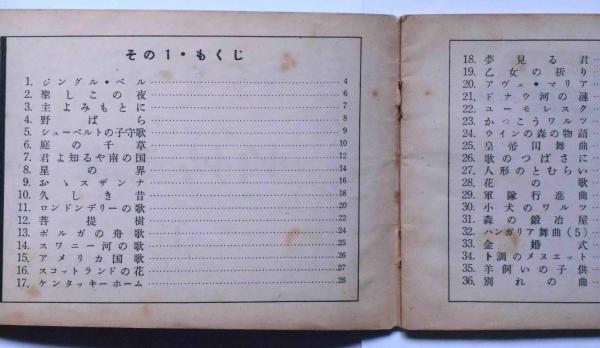 その1・もくじ
1. ジングル・ベル 4
2. 聖しこの夜 6
3. 主よみもとに 7
4. 野ばら 8
5. シューベルトの子守歌 9
6. 庭の千草 10
7. 君よ知るや南の国 12
8. 星の界 14
9. おゝスザンナ 16
10. 久しき昔 18
11. ロンドンデリーの歌 20
12. 菩提樹 22
13. ボルガの舟歌 24
14. スワニー河の歌 25
15. アメリカ国歌 26
16. スコットランドの花 27
17. ケンタッキーホーム 28
18. 夢見る君
19. 乙女の祈り
20. アヴェ・マリア
21. ドナウ河の漣
22. ユーモレスク
23. かっこうワルツ
24. ウインの森の物語
25. 皇帝円舞曲
26. 歌のつばさに
27. 人形のとむらい
28. 花の歌
29. 軍隊行進曲
30. 小犬のワルツ
31. 森の鍛冶屋
32. ハンガリア舞曲(5)
33. 金婚式
34. ト調のメヌエット
35. 羊飼いの子供
36. 別れの曲